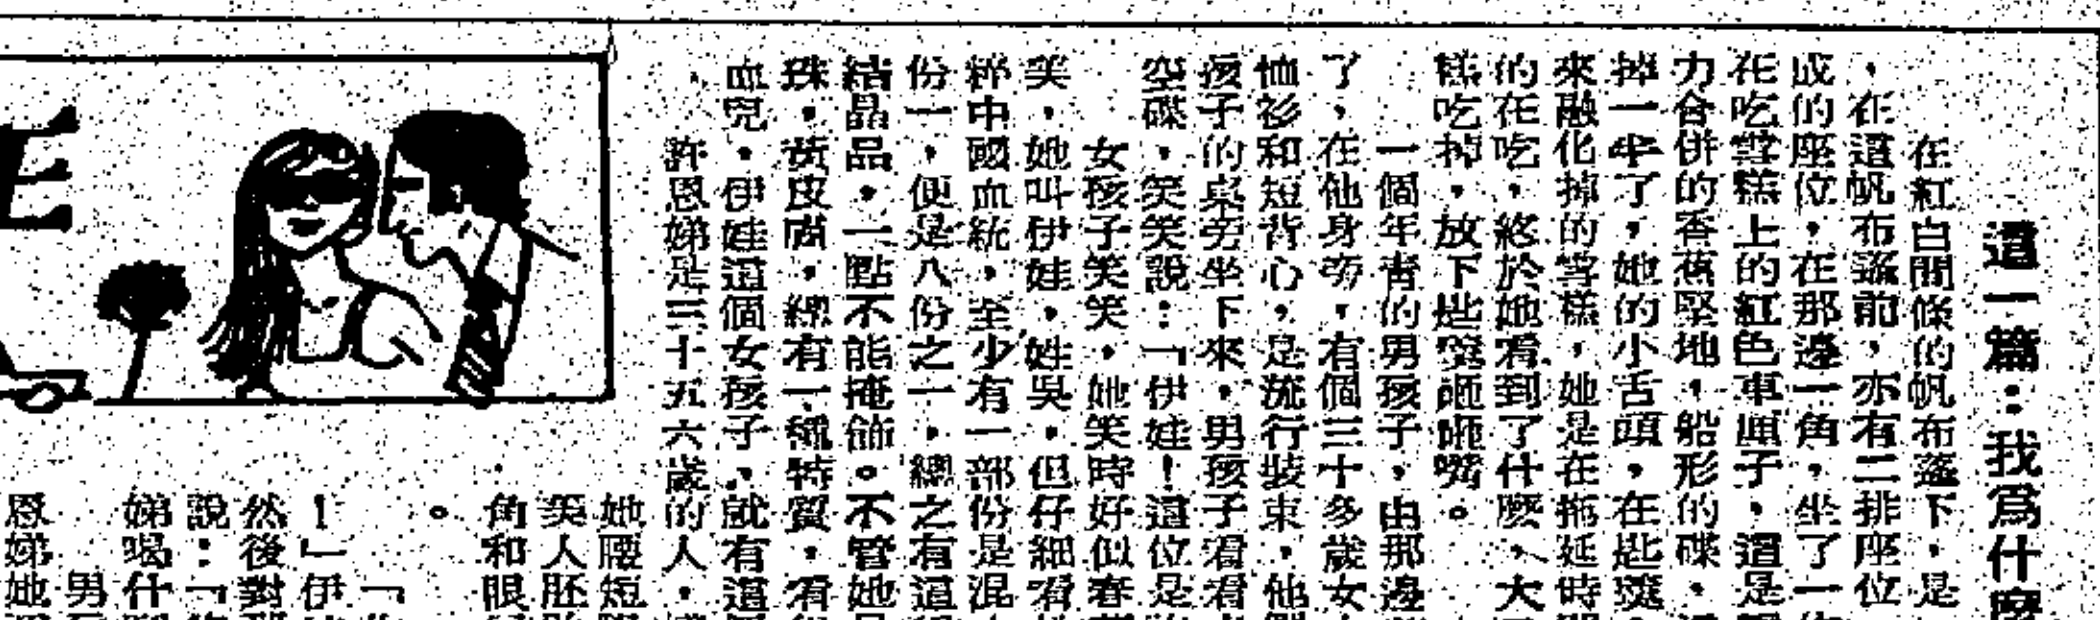 這一篇：我爲什麼
在紅白間條的帆布蓬下，是
，在這帆布蓬前，亦有二排座位
成的座位，在那邊一角，坐了一
在吃雪糕上的紅色車厘子，這是
力合併的香蕉堅地，船形的碟，
掉一半了，她的小舌頭，在匙羹
來融化掉的雪糕，她是在拖延時
的在吃，終於她看到了什麼，大
糕吃掉，放下匙羹砸砸嘴。
一個年青的男孩子，由那邊
了，在他身旁，有個三十多歲女
恤衫和短背心，是流行裝束，他
孩子的桌旁坐下來，男孩子看看
空碟，笑笑說：「伊娃！這位是
女孩子笑笑，她笑時好似春
笑，她叫伊娃，姓吳，但仔細看
粹中國血統，至少有一部份是混
份一，便是八份之一，總之有這
結晶品，一點不能掩飾。不管她
珠，黃皮膚，總有一種特質，看
血兒，伊娃這個女孩子，就有這
許恩娣是三十五六歲的人，
她腰短
美人胚
角和眼
。
「
！」伊
然後對
說：「
娣喝什
男
恩娣她